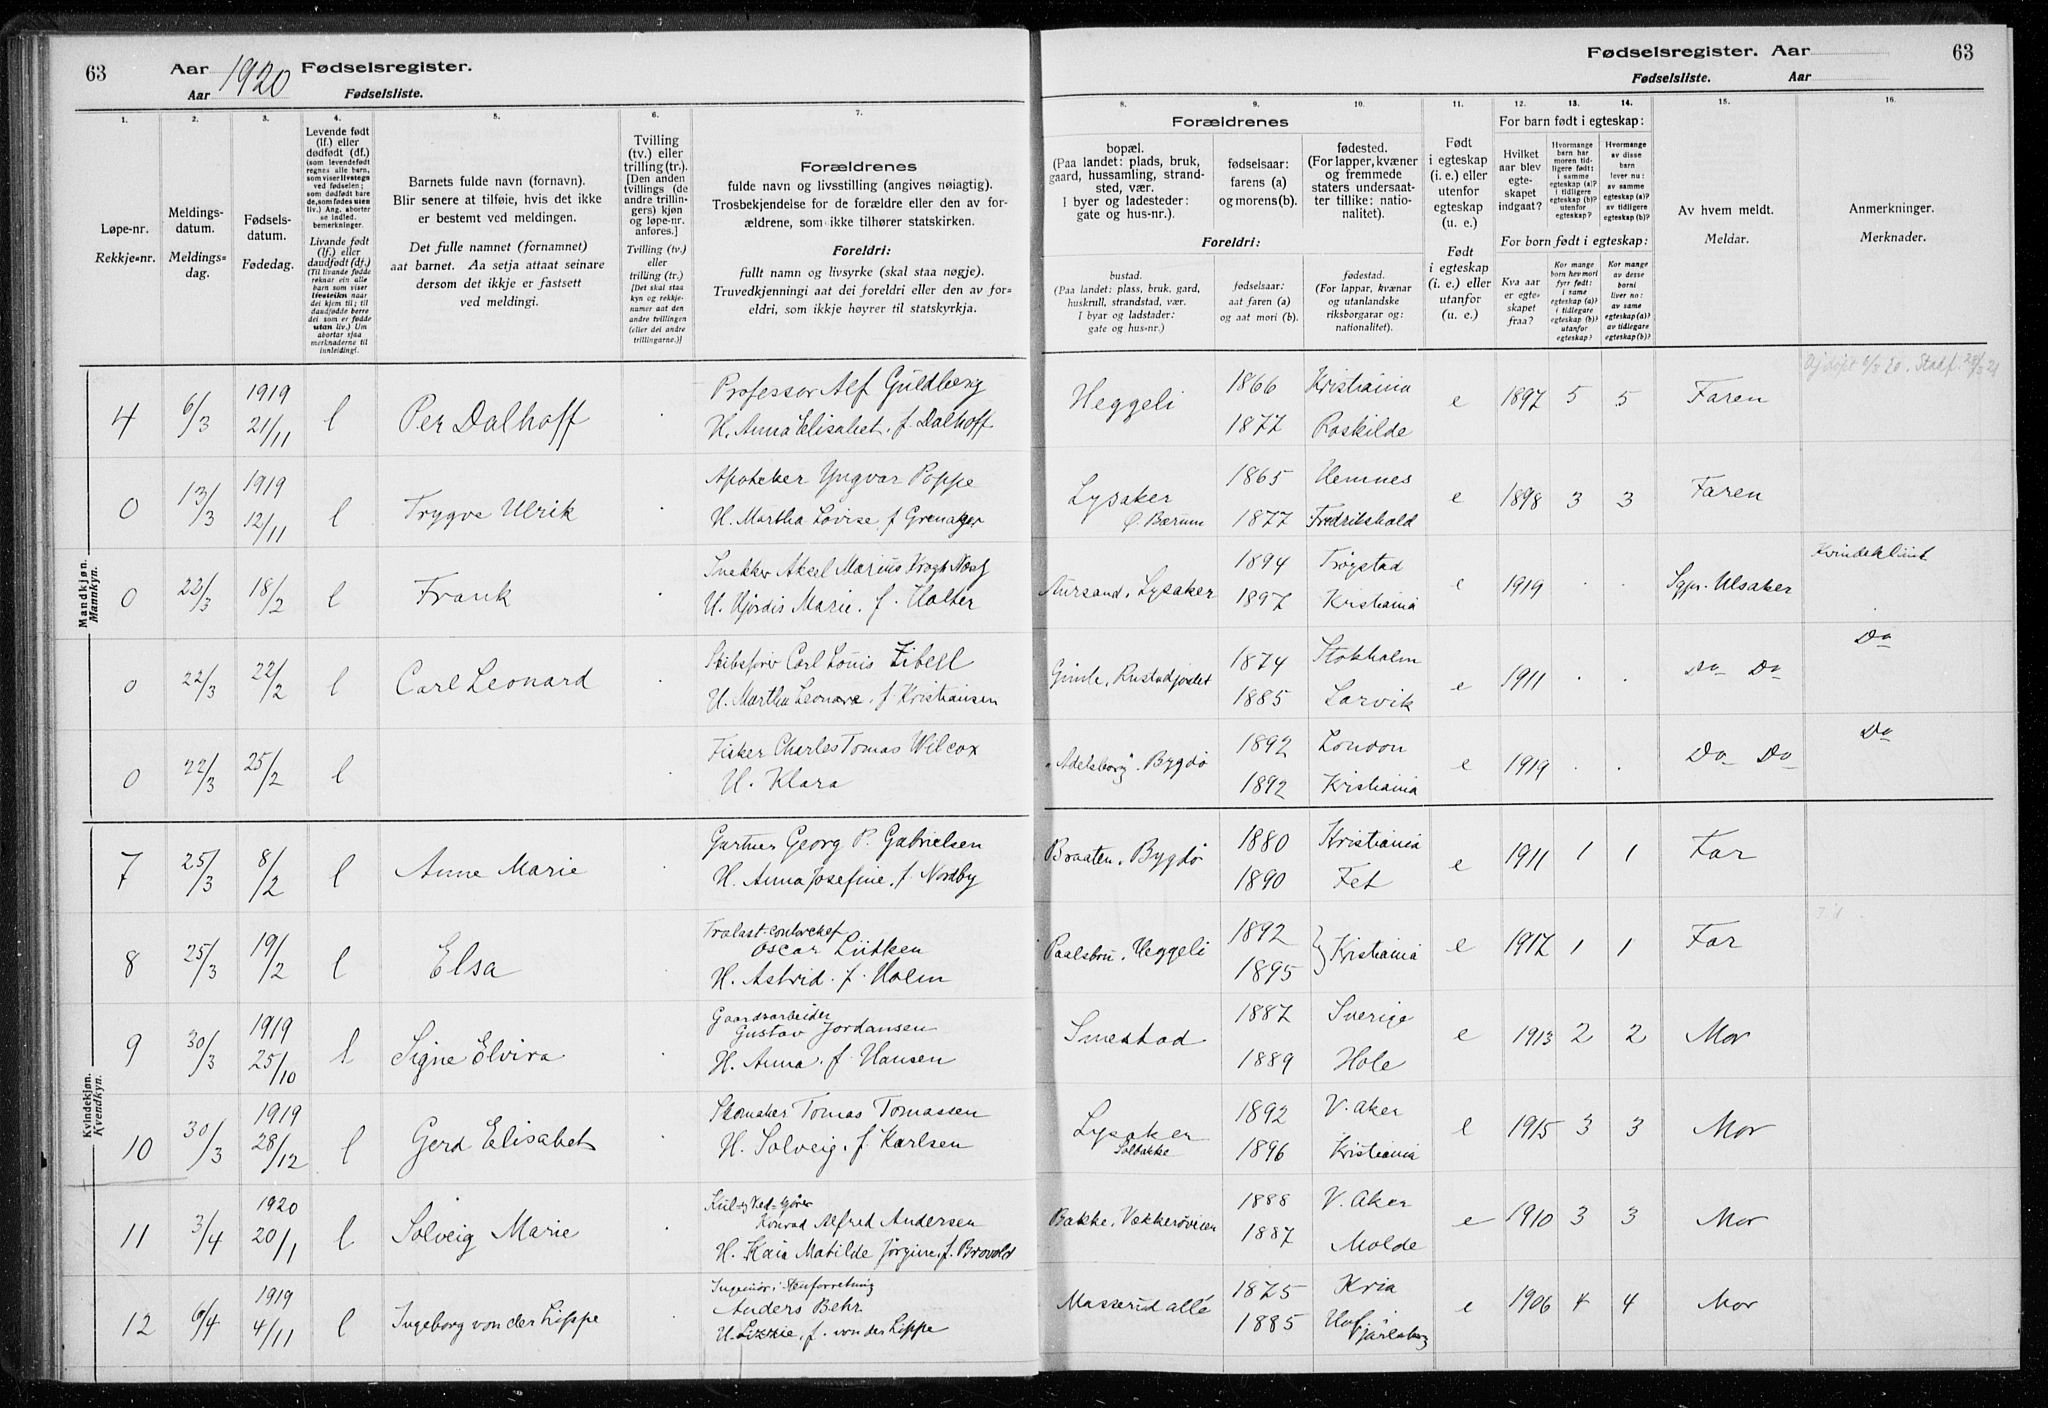 63
Aar 1920 Fødselsregister.
Aar
Fødselsliste.
Fødselsregister. Aar
63
Fødselsliste. Aar
1.
2.
3.
4.
5.
6.
7.
8.
9.
10.
11.
12.
13.
14.
15.
16.
Løpe-nr.
Rekkje=nr.
Meldings-
datum.
Meldings=
dag.
Fødsels-
datum.
Fødedag.
Levende født
(lf.) eller
dødfødt (df.)
(som levendefødt
regnes alle barn,
som viser livstegn
ved fødselen;
som dødfødt bare
de, som fødes uten
liv.) Ang. aborter
se indled.
bemerkninger.
Livande født
(lf.) eller
daudfødt (df.)
(Til livande fødde
reknar ein alle
barn som viser
livsteikn naar
dei kjem til; til
daudfødde berre
dei som er fødde
utan liv.) Um
abortar sjaa
merknaderne til
innleiding!
Barnets fulde navn (fornavn).
Blir senere at tilføie, hvis det ikke
er bestemt ved meldingen.
Det fulle namnet (fornamnet)
aat barnet. Aa setja attaat seinare
dersom det ikkje er fastsett
ved meldingi.
Tvilling
(tv.) eller
trilling (tr.)
[Den anden
tvillings (de
andre trillin-
gers) kjøn
og løpe-nr.
anføres.]
Tvilling (tv.)
eller
trilling (tr.)
[Det skal staa
kyn og rekkje-
numer aat den
andre tvillingen
(eller dei andre
trillingarne.)]
Forældrenes
fulde navn og livsstilling (angives nøiagtig).
Trosbekjendelse for de forældre eller den av for-
ældrene, som ikke tilhører statskirken.
Foreldri:
fullt namn og livsyrke (skal staa nøgje).
Truvedkjenningi aat dei foreldri eller den av for=
eldri, som ikkje høyrer til statskyrkja.
Forældrenes
bopæl.
(Paa landet: plads, bruk,
gaard, hussamling, strand-
sted, vær.
I byer og ladesteder:
gate og hus-nr.)
fødselsaar:
farens (a)
og morens(b).
fødested.
(For lapper, kvæner
og fremmede
staters undersaat-
ter tillike: natio-
nalitet).
Foreldri:
bustad.
(Paa landet: plass, bruk, gard,
huskrull, strandstad, vær.
I byar og ladstader:
gate og hus=nr.)
fødselsaar:
aat faren (a)
og aat mori (b).
fødestad.
(For lappar, kvænar
og utanlandske
riksborgarar og:
nationalitet).
Født
i egteskap
(i. e.) eller
utenfor
egteskap
(u. e.)
Født
i egteskap
(i. e.) eller
utanfor
(u. e.)
For barn født i egteskap:
Hvilket
aar blev
egte-
skapet
indgaat?
Hvormange
barn har
moren tid-
ligere født:
i samme
egteskap (a)?
i tidligere
egteskap (b)?
utenfor
egteskap?
Hvormange
av disse
barn
lever nu:
av samme
egteskap (a)?
av tidligere
egteskap (b)?
For born født i egteskap:
Kva aar
er egte=
skapet
fraa?
Kor mange
born hev mori
fyrr født:
i same
egteskap (a)?
i tidlegare
egteskap (b)?
utanfor
egteskap?
Kor mange
av desse
borni
liver no:
av same
egteskap (a)?
av tidlegare
egteskap (b)?
Av hvem meldt.
Meldar.
Anmerkninger.
Merknader.
Mandkjøn.
Mannkyn.
4 6/3 1919 21/11 l Per Dalhoff . Professor Alf Guldberg
H. Anna Elisabet, f. Dalhoff Heggeli 1866 1877 Kristiania Roskilde e 1897 5 5 Faren
0 13/3 1919 12/11 l Trygve Ulrik . Apoteker Yngvar Poppe
H. Martha Lovise, f. Grenager Lysaker Bærum 1865 1877 Hemnes Fredrikshald e 1898 3 3 Faren
0 22/3 18/2 l Frank . Snekker Aksel Marius Krogh
H. Hjørdis Marie, f. Holter Aursand, Lysaker 1894 1897 Trøgstad Kristiania e 1919 . . Ulsaker Kvindeklinik
0 22/3 22/2 l Carl Leonard . Skibsfører Carl Louis Zibell
H. Martha Leonare, f. Kristiansen Gimle, 1874 1885 Stokholm Larvik e 1911 . . Do Do Do
0 22/3 25/2 l . Fisker Charles Tomas Wilcox
H. Klara "Adelsborg", Bygdø 1892 1892 London Kristiania e 1919 . . Do Do Do
Kvindekjøn.
Kvendkyn.
7 25/3 8/2 l Anne Marie . Gartner Georg P. Gabrielsen
H. Anna Josefine, f. Nordby Braaten, Bygdø 1880 1890 Kristiania Fet e 1911 1 1 Far
8 25/3 19/2 l Elsa . Trælast-
Oscar Lütken
H. Astrid f. Holm Paalsbru, Heggeli 1892 1895 } Kristiania e 1917 1 1 Far
9 30/3 1919 25/10 l Signe Elvira . Gaardsarbeider
Gustav Jordansen
H. Anna, f. Hansen Smestad 1887 1889 Sverige Hole e 1913 2 2 Mor
10 30/3 1919 28/12 l Gerd Elisabet . Skomaker Tomas Tomassen
H. Solveig, f. Karlsen Lysaker Solbakke 1892 1896 V. Aker Kristiania e 1915 3 3 Mor
11 3/4 1920 20/1 l Solveig Marie . Kul og Ved-kjører
Konrad Alfred Andersen
H. Kaia Matilde Jørgine, f. Brovold Bakke, Vækkerøveien 1888 1887 V. Aker Molde e 1910 3 3 Mor
12 6/4 1919 4/11 l Ingeborg von der Lippe . Ingeniør i Stenforretning
Anders Behr
H. Lizzie, f. von der Lippe Masserud allé 1875 1885 Kria Hof Jarlsberg e 1906 4 4 Mor